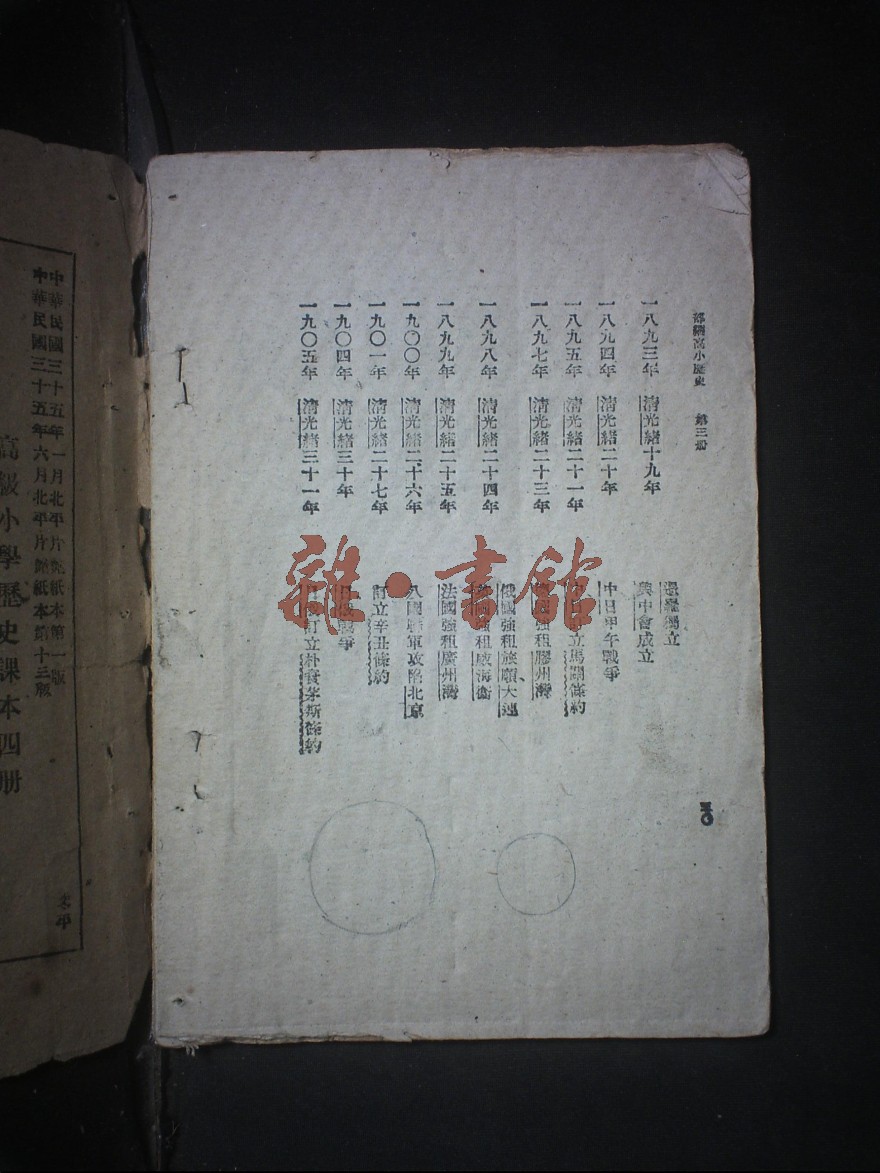 部編高小歷史 第三册
暹羅獨立
一八九三年 清光緒十九年 興中會成立
一八九四年 清光緒二十年 中日甲午戰爭
一八九五年 清光緒二十一年 中日訂立馬關條約
一八九七年 清光緒二十三年 德國強租膠州灣
一八九八年 清光緒二十四年 俄國強租旅順、大連
英國強租威海衞
一八九九年 清光緒二十五年 法國強租廣州灣
一九〇〇年 清光緒二十六年 八國聯軍攻陷北京
一九〇一年 清光緒二十七年 訂立辛丑條約
一九〇四年 清光緒三十年 日俄戰爭
一九〇五年 清光緒三十一年 日俄訂立朴資茅斯條約
三〇
雜·書館
中華民國三十五年一月北平片艷紙本第一版
中華民國三十五年六月北平片艷紙本第十三版
高級小學歷史課本四册